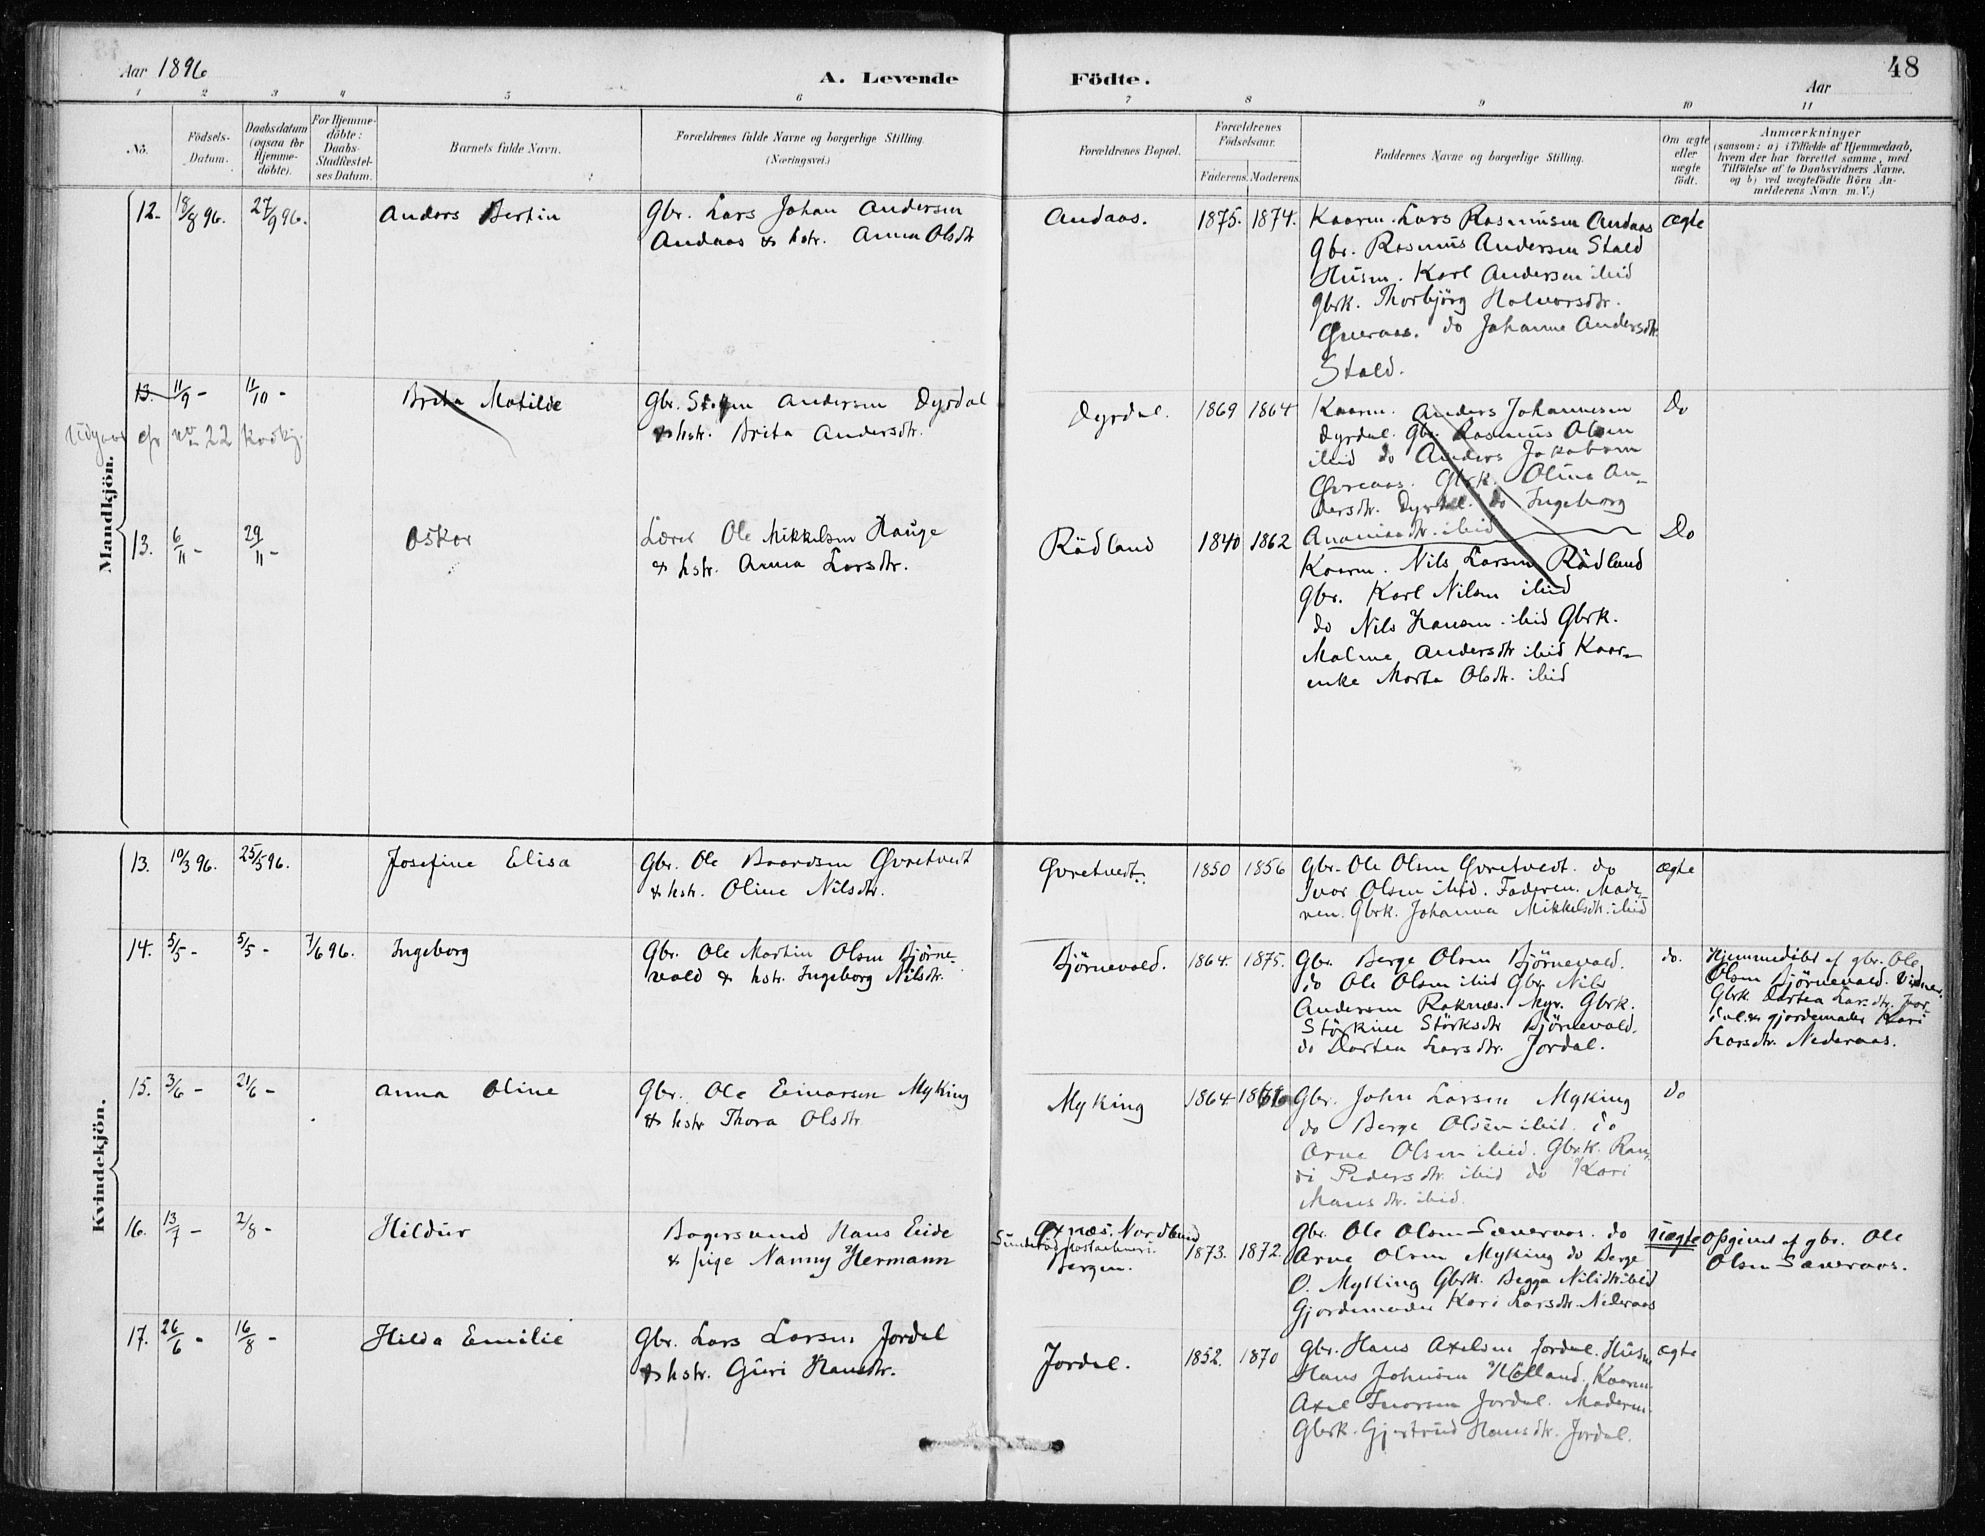 48
Aar 1896
A. Levende Födte.
Aar
1 2 3 4 5 6 7 8 9 10 11
No.
Födsels-Datum.
Daabsdatum (ogsaa for Hjemme-döbte).
For Hjemme-döbte: Daabs-Stadfæstel-ses Datum.
Barnets fulde Navn.
Forældrenes fulde Navne og borgerlige Stilling. (Næringsvei.)
Forældrenes Bopæl.
Forældrenes Födselsaar.
Faderens. Moderens.
Faddernes Navne og borgerlige Stilling.
Om ægte eller uægte födt.
Anmærkninger
(saasom: a) i Tilfælde af Hjemmedaab,
hvem der har forrettet samme, med
Tilföielse af to Daabsvidners Navne.
og b) ved uægtefödte Börn An-
melderens Navn m. V.)
Mandkjön.
12. 18/8 96. 27/9 96. Anders Bertin
Gbr. Lars Johan Andersen
Andaas & hstr. Anna Olsdtr
Andaas. 1875. 1874.
Kaarm. Lars Rasmusen Andaas
Gbr. Rasmus Andersen Stald
Husm. Karl Andersen ibid
Gbrk. Thorbjörg Halvorsdtr.
Øvreaas. do Johanne Andersdtr.
Stald.
ægte
13. 11/9 - 11/10 - Brita Matilde
Udgaar cfr no 22
Gbr. Steffen Andersen Dyrdal
& hstr. Brita Andersdtr.
Dyrdal. 1869 1864
Kaarm. Anders Johannesen
Dyrdal. Gbr. Rasmus Olsen
ibid do Anders Jakobsen
Øvreaas. Gbrk. Oline An-
dersdtr. Dyrdal. do Ingeborg
Ananiasdtr. ibid
Do
13. 6/11 - 29/11 - Oskar
Lærer Ole Mikkelsen Hauge
& hstr. Anna Larsdtr.
Rödland 1840 1862
Kaarm. Nils Larsen Rödland
Gbr. Karl Nilsen ibid
do Nils Hansen ibid Gbrk.
Malene Andersdtr ibid Kaar-
enke Marta Olsdtr. ibid
Do
Kvindekjön.
13. 10/3 96. 25/5 96. Josefine Elisa
Gbr. Ole Baardsen Øvretvedt
& hstr. Oline Nilsdtr.
Øvretvedt. 1850 1856
Gbr. Ole Olsen Øvretvedt. do
Ivar Olsen ibid. Faderen. Mode-
ren. Gbrk. Johanna Mikkelsdtr. ibid
ægte
14. 5/5 - 5/5 - 7/6 96. Ingeborg
Gbr. Ole Martin Olsen Björne-
vald & hstr. Ingeborg Nilsdtr.
Björnevald. 1864. 1875.
Gbr. Berge Olsen Björnevald.
do Ole Olsen ibid Gbr. Nils
Andersen Raknes. Myr. Gbrk.
Störkine Störksdtr Björnevald.
do Dortea Larsdtr. Jordal.
do.
Hjemmedöbt af gbr. Ole
Olsen Björnevald. Vidner.
Gbrk Dortea Larsdtr. Jor-
dal & gjordemoder Kari
Larsdtr. Nederaas.
15. 3/6 - 21/6 - Anna Oline
Gbr. Ole Einarsen Myking
& hstr Thora Olsdtr
Myking 1864
Gbr. John Larsen Myking
do Berge Olsen ibid. do
Arne Olsen ibid. Gbrk. Ran-
di Pedersdtr. ibid do Kari
Mansdtr. ibid.
Do
16. 13/7 - 2/8 - Hildur
Bagersvend Hans Eide
& pige Nanny Hermann
Nordland
Bergen.
1873. 1872.
Gbr. Ole Olsen Sæveraas. do
Arne Olsen Myking do Berge
O. Myking Gbrk. Begga Nilsdtr ibid
Gjordemoder Kari Larsdtr. Nederaas
Uægte
Opgivet af gbr. Ole
Olsen Sæveraas.
17. 26/6 - 16/8 - Hilda Emilie
Gbr. Lars Larsen Jordal
& hstr. Guri Hansdtr.
Jordal. 1852. 1870
Gbr. Hans Axelsen Jordal. Husm
Hans Johnsen Holland. Kaarm.
Axel Ivarsen Jordal. Moderen.
Gbrk. Gjertrud Hansdtr. Jordal.
ægte